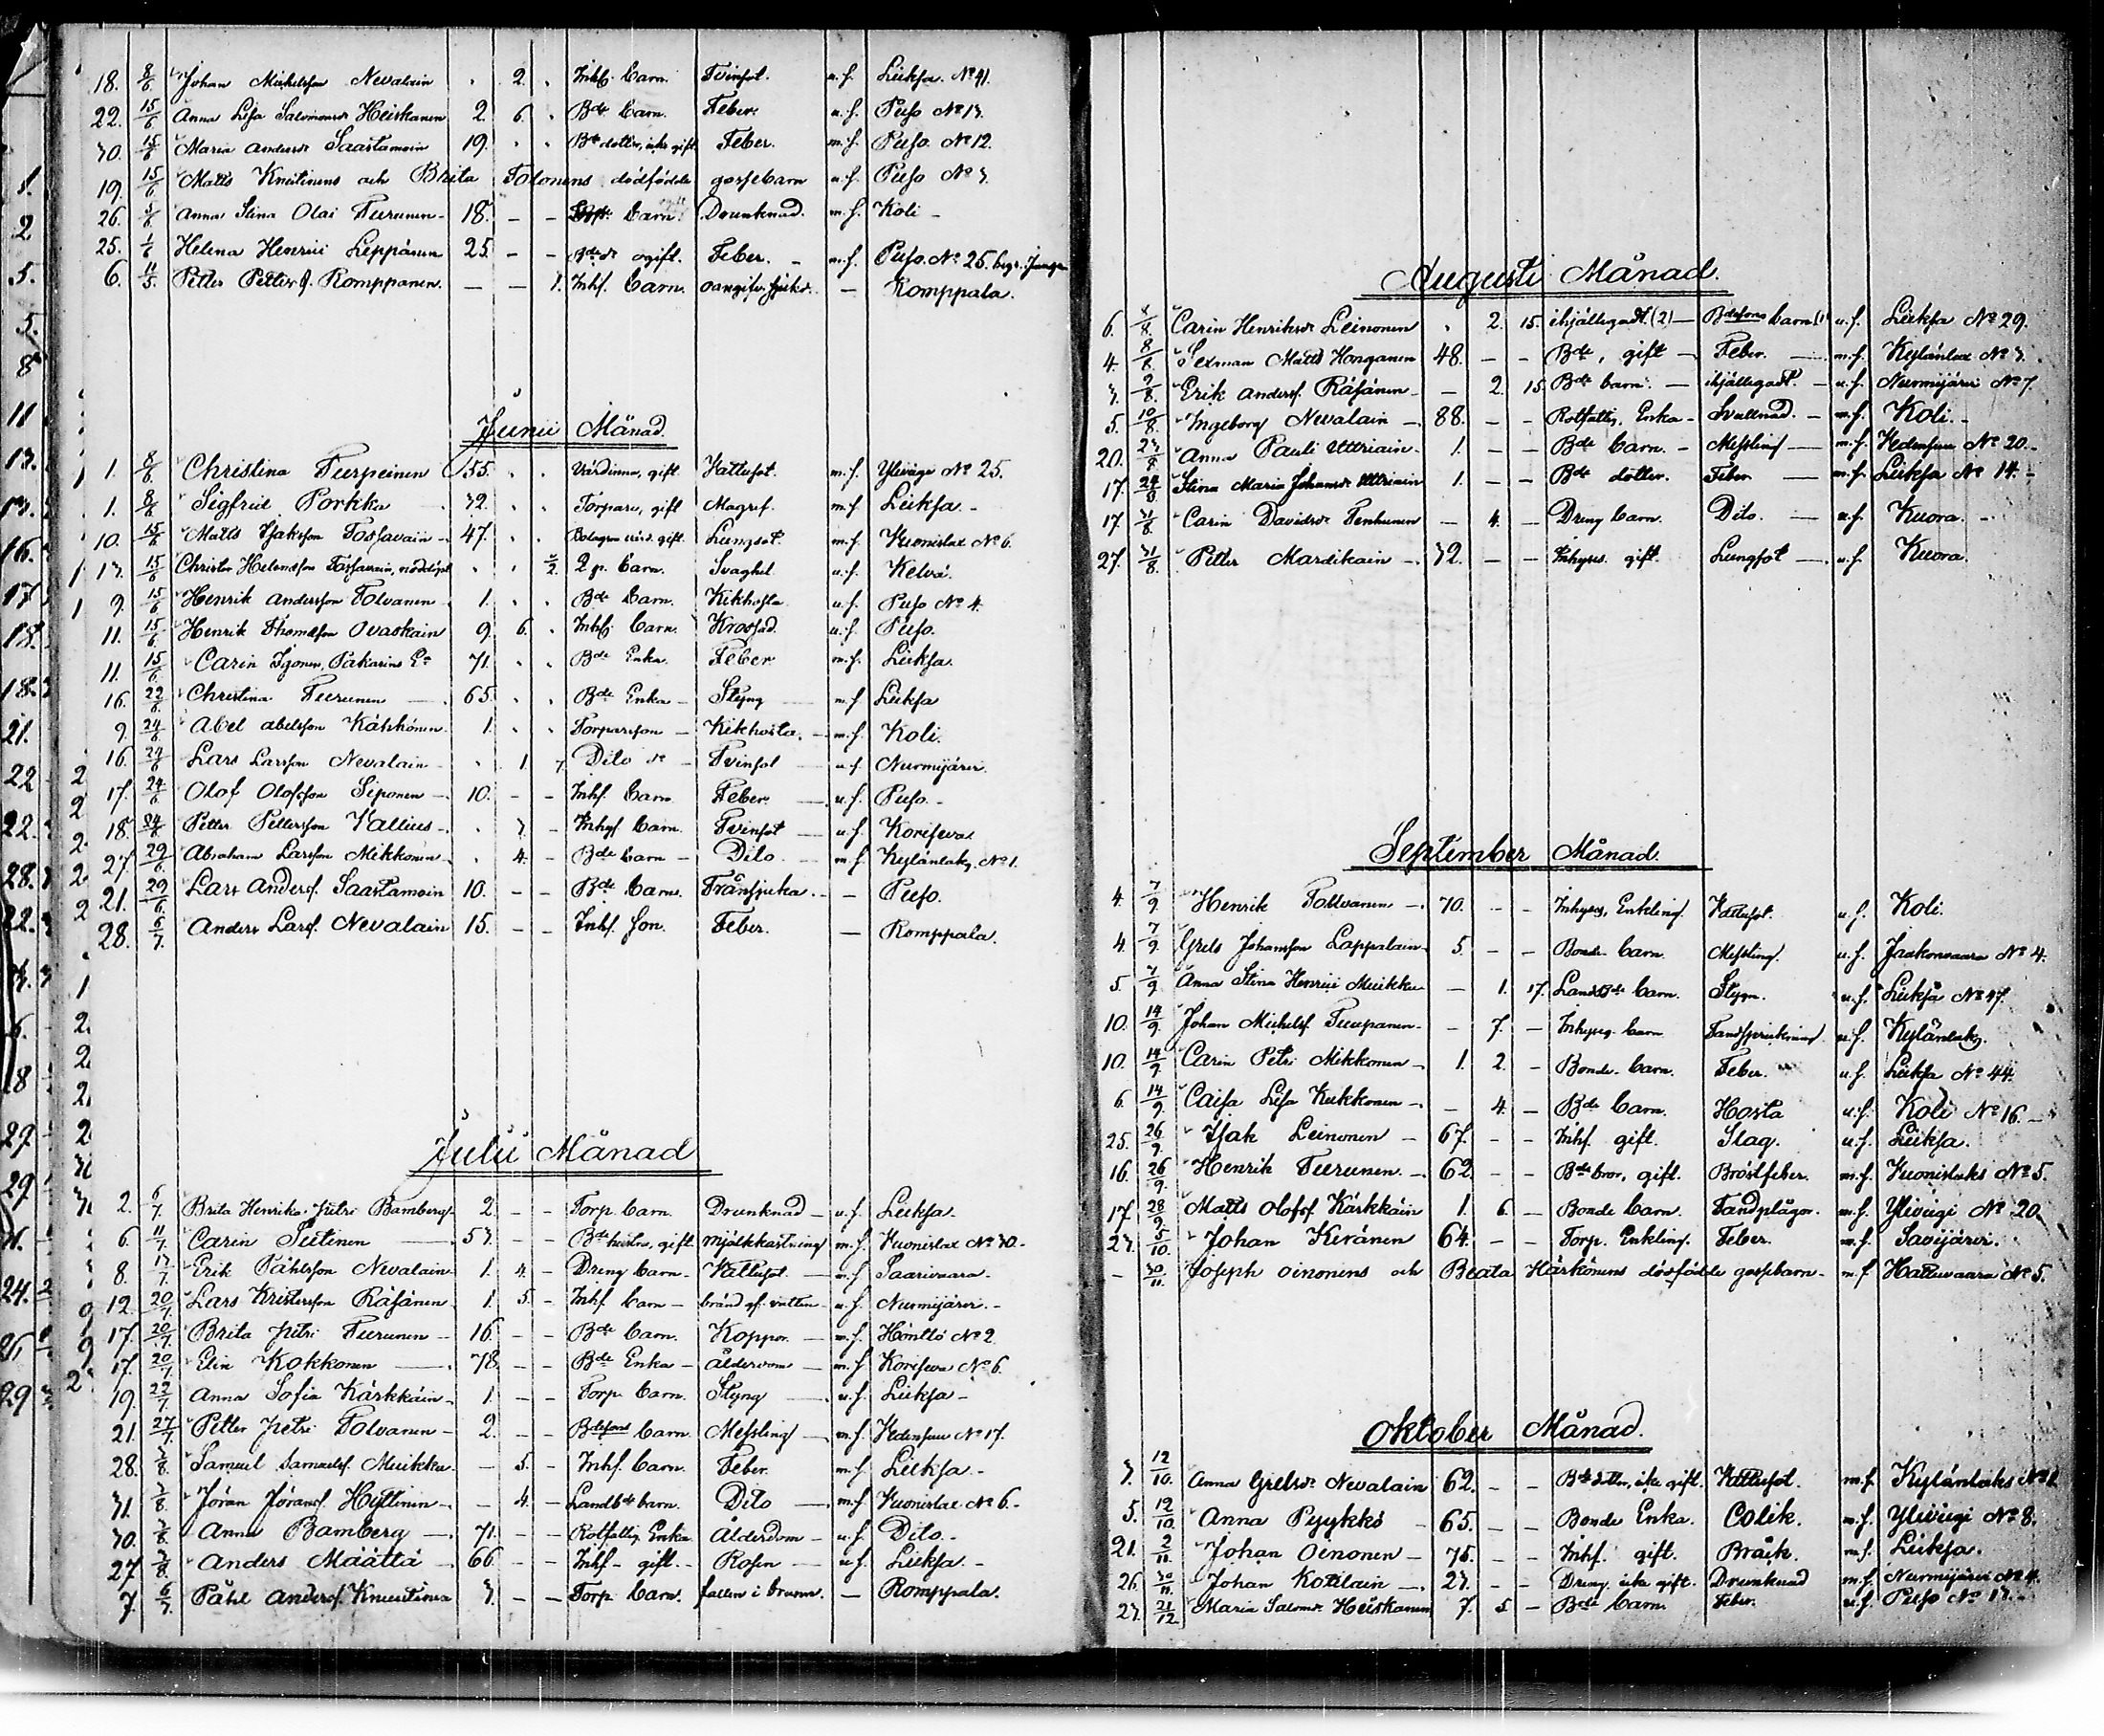 18. 8/6 Johan Michelsson Nevalain " 2. " Inhs. barn. Tvinsot. u.f. Lieksa. No 41.
22. 15/6 Anna Lisa Salomonsdr Heiskanen 2. 6. " Bde barn. Feber. u.f. Puso No 13.
30. 15/6 Maria Andersdr Saastamoin 19. " " Bde dotter, icke gift Feber. m.f. Puso. No 12.
19. 15/6 Matts Knutinens och Brita Tolonens dödfödde gossebarn u.f. Puso No 3.
26. 5/6 Anna Stina Olai Turunen - 18. - - barn. Drunknad. m.f. Koli -
25. 1/6 Helena Henrici Leppänen 25. - - Bde dr ogift. Feber. - m.f. Puso. No 25. begr.
6. 11/5. Petter Petters. Romppanen. - - 1. Inhs. barn. oangifv. sjukd. - Romppala.
Junii Månad.
1. 8/6. Christina Turpeinen 55. " " Värdinna, gift. Hållsot. m.f. Ylivügi No 25.
1. 8/6 Sigfrid Porkka 32. " " Torpare, gift Magref. m.f Lieksa. -
10. 15/6 Matts Isaksson Tossavain - 47. " " Bolagsm. gift. Lungsot. m.f. Kuonislax No 6.
13. 15/6 Christer Helensson Tossavain, nöddöpt " " 1/2 2 p. barn. Svaghet. u.f. Kelvä.
9. 15/6 Henrik Andersson Tolvanen 1. " " Bde barn. Kikhosta u.f. Puso No 4.
11. 15/6 Henrik Thomasson Ovaskain 9. 6. " Inhs. barn. Krossad. u.f. Puso.
11. 15/6 Carin Igonen, Pakarins Ea 71. " " Bde Enka. Feber m.f. Lieksa.
16. 22/6 Christina Turunen - 65. " " Bde Enka - Styng m.f Lieksa
9. 24/6 Abel Abelsson Kähkönen. 1. " " Torparson - Kikhosta. - m.f. Koli.
16. 24/6 Lars Larsson Nevalain - " 1. 7. Dito dr - Tvinsot - u.f. Nurmijärvi.
17. 24/6 Olof Olofsson Siponen - 10. - - Inhs. barn. Feber. - u.f. Puso. -
18. 24/6 Petter Pettersson Kallius - " 3. - Inhys. barn. Tvinsot - u.f. Korisevа
27. 29/6. Abraham Larsson Mikkonen - " 4. - Bde barn - Dito. - m.f Kylänlaks, No 1.
21. 29/6. Lars Anders. Saastamoin 10. - - Bde barn. Trånsjuka. - Puso.
28. 6/7. Anders Lars. Nevalain 15. - - Inhs. son. Feber. - Romppala.
Julii Månad
2. 6/7. Brita Henrika Petri Bamberg 2. - - Torp. barn. Drunknad - u.f. Lieksa -
6. 11/7. Carin Sutinen - 53. - - Bde hustru, gift mjölkkastning m.f. Kuonislax No 30. -
8. 13/7. Erik Påhlsson Nevalain 1. 4. - Dreng barn - Hållsot. - m.f Saarivaara -
12. 20/7 Lars Kristersson Räsänen. 1. 5. - Inhs. barn - bränd af vatten - u.f. Nurmijärvi. -
17. 20/7 Brita Petri Turunen - 16 - - Bde barn. Koppor. - m.f. Höntlö No 2
17. 20/7 Elin Kokkonen - 78. - - Bde Enka - ålderdom - m.f Korisevа No 6.
19. 22/7. Anna Sofia Kärkkäin - 1. - - Torp. barn. Styng - u.f. Lieksa -
21. 27/7. Petter Petri Tolvanen - 2. - - Bdesons barn. Messling - m.f. Hedensuu No 17.
28. 3/8. Samuel Samuels. Muikka - - 5. - Inhs. barn. Feber. m.f. Lieksa. -
31. 3/8. Jöran Jörans. Hyttinen - - 4. - Landbde barn. Dito - m.f Kuonislax No 6. -
30. 3/8. Anna Bamberg - 71. - - Rotfattig Enka Ålderdom - u.f. Dito. -
27. 3/8. Anders Määttä - 66 - - Inhs - gift. - Rosen - u.f. Lieksa. -
7. 6/7. Påhl Anders. Knuutinen 3. - - Torp. barn. fallen i brunn. - Romppala.
Augusti Månad.
6. 8/8. Carin Henriksdr Leinonen " 2. 15. ihjällegadt. (2) - Bdesons barn (1) u.f. Lieksa No 29.
4. 8/8. Sexman Matts Honganen 48. - - Bde, gift - Feber. - m.f. Kylänlax No 3.
3. 9/8. Erik Anders. Räsänen - - 2. 15. Bde barn. - ihjällegadt. - u.f. Nurmijärvi No 7.
5. 10/8. Ingeborg Nevalain - 88. - - Rotfattig, Enka - Svullnad. - m.f. Koli. -
20. 23/8 Anna Pauli Uttriain - 1. - - Bde barn. - Messling - m.f. Hedensuu No 20. -
17. 24/8. Stina Maria Johansdr Uttriain 1. - - Bde dotter. Feber - m.f. Lieksa No 14. -
17. 31/8. Carin Davidsdr Tenhunen - 4. - Dreng barn. Dito. - u.f. Kuora. -
27. 31/8. Petter Mardikain - 32. - - Inhyses. gift. Lungsot - u.f. Kuora.
September Månad.
4. 7/9. Henrik Tolvanen - 70. - - Inhyses, Enkling. Hållsot. u.f. Koli.
4. 7/9. Grels Johansson Lappalain 5. - - Bonde barn. Messling. u.f. Jaakonvaara No 4.
5. 7/9 Anna Stina Henrici Muikku - 1. 17. Landbde barn. Stygn. u.f. Lieksa No 47.
10. 14/9. Johan Michels. Turpanen. - 7. - Inhyses barn Tandsprickning u.f. Kylänlaks.
10. 14/9. Carin Petri Mikkonen - 1. 2. - Bonde barn. Feber. u.f. Lieksa No 44.
6. 14/9. Caisa Lisa Kukkonen - - 4. - Bde barn. Hosta u.f. Koli No 16. -
25. 26/9. Isak Leinonen - 67. - - Inhs. gift. Slag. u.f. Lieksa.
16. 26/9. Henrik Turunen. - 62. - - Bde bror, gift. Bröstfeber. m.f. Kuonislaks No 5.
17. 28/9. Matts Olofs. Kärkkäin 1. 6. - Bonde barn. Tandplågor. m.f. Ylivügi No 20.
23. 5/10. Johan Keränen 64. - - Torp. Enkling. Feber. m.f. Savijärvi.
- 30/11. Joseph Oinonens och Beata Härkönens dödfödde gossebarn - m.f Hattuvaara No 5.
Oktober Månad.
3. 12/10. Anna Grelsdr Nevalain 62. - - Bde dotter, icke gift Hållsot. m.f. Kylänlaks No 1.
5. 12/10. Anna Pyykkö - 65. - - Bonde Enka. Colik. m.f. Ylivügi No 8.
21. 2/11. Johan Oinonen - 75. - - Inhs. gift. Bråck. m.f. Lieksa.
26. 30/11. Johan Kotilain - 23. - - Dreng. icke gift. Drunknad m.f. Nurmijärvi No 4.
23. 21/12 Maria Salomdr Heiskanen 7. 5. - Bde barn. Feber. u.f. Puso No 13. -